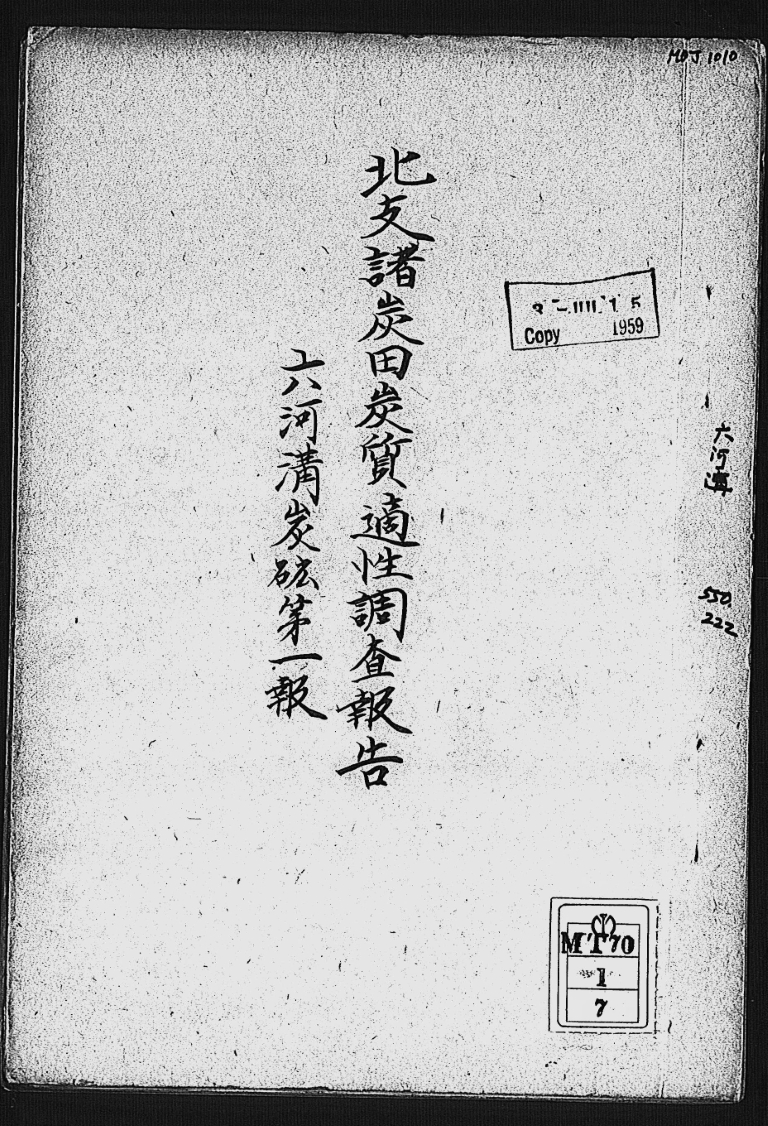 MOJ 1010
北支諸炭田炭質適性調査報告
六河溝炭砿第一報
Copy
1959
六河溝
550
222
MT70
1
7